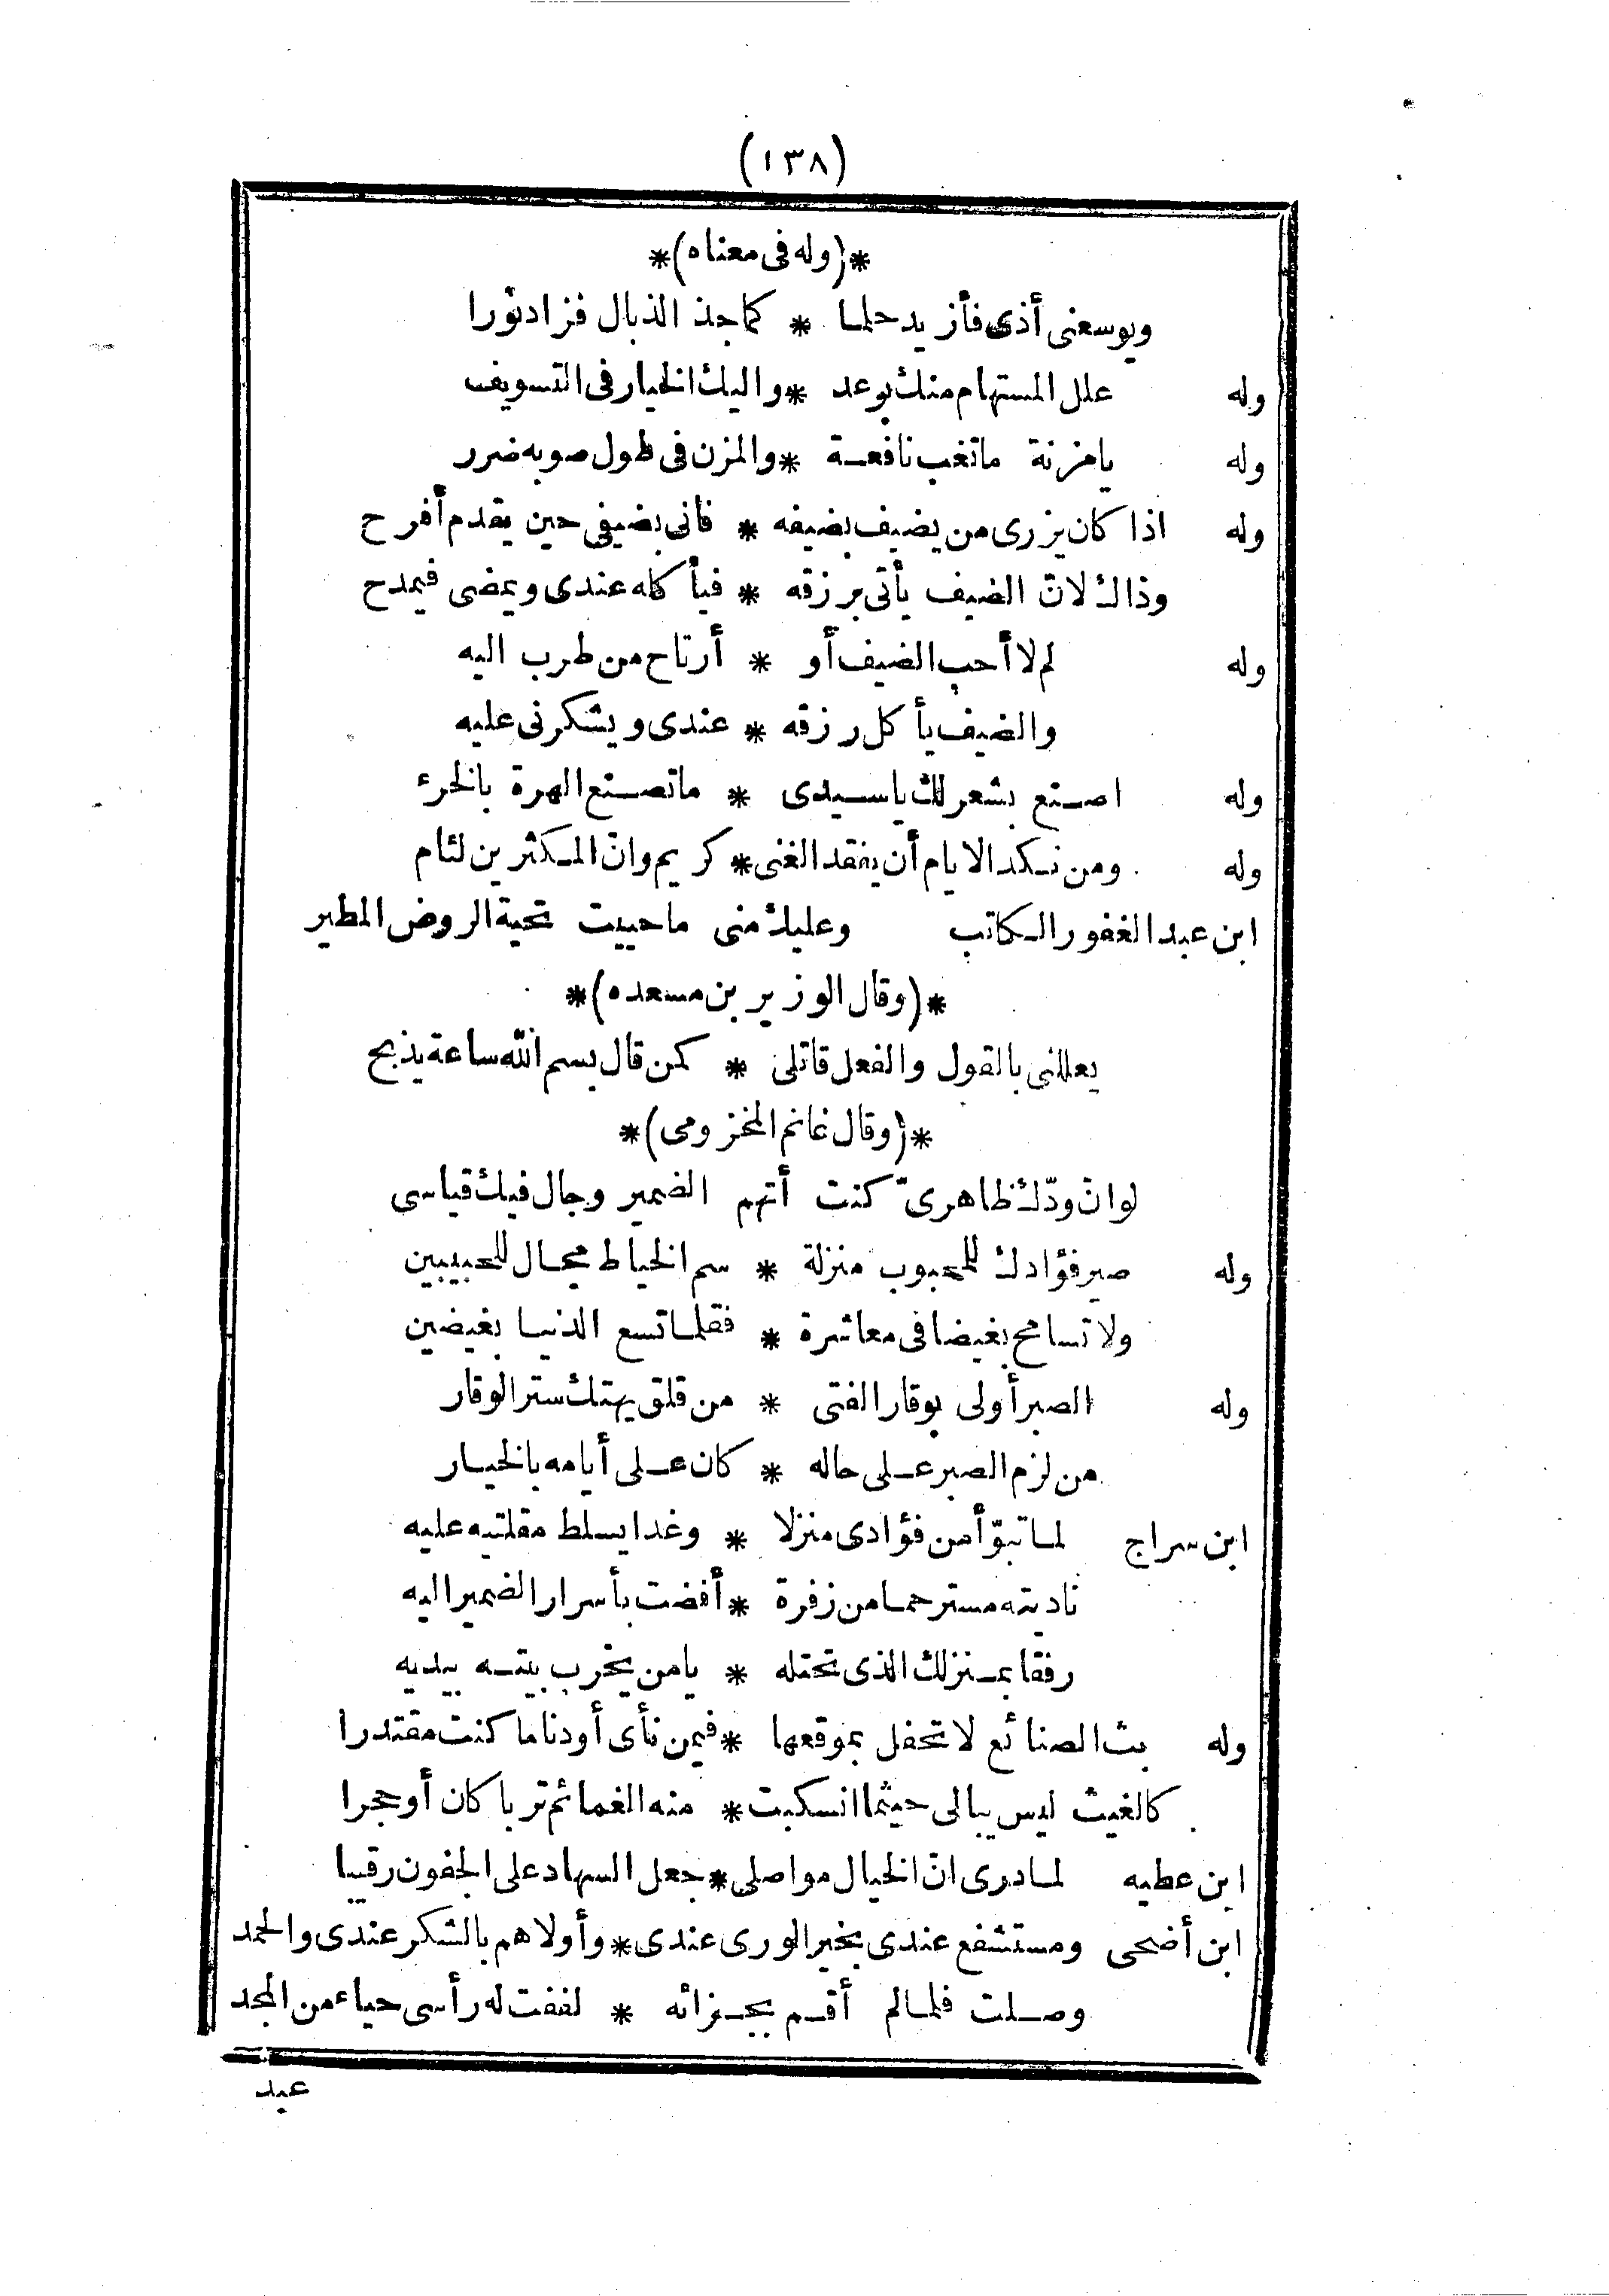 (١٣٨)
*(وله فى معناه)*
ويوسعنى أذى فأزيد حلما * كما جذ الذبال فزاد نورا
وله علل المستهام منك بوعد * واليك الخيار فى التسويف
وله يا مزنة ما تغب نافعة * والمزن فى طول صوبه ضرر
وله اذا كان يزرى من يضيف بضيفه * فانى بضيفى حين يقدم أفرح
وذاك لانّ الضيف يأتى برزقه * فيأكله عندى ويمضى فيمدح
وله لم لا أحب الضيف أو * أرتاح من طرب اليه
والضيف يأكل رزقه * عندى ويشكرنى عليه
وله اصنع بشعرلك ياسيدى * ما تصنع الهرة بالخرء
وله ومن نكد الايام أن يفقد الغنى * كريم وانّ المكثرين لئام
ابن عبد الغفور الكاتب وعليك منى ما حييت تحية الروض المطير
*(وقال الوزير بن مسعده)*
يعللنى بالقول والفعل قاتلى * كمن قال بسم الله ساعة يذبح
*(وقال غانم المخزومى)*
لو انّ ودّك ظاهرىّ كنت أتهم الضمير وجال فيك قياسى
وله صير فؤادك للمحبوب منزلة * سم الخياط مجال للحبيبين
ولا تسامح بغيضا فى معاشرة * فقلما تسع الدنيا بغيضين
وله الصبر أولى بوقار الفتى * من قلق يهتك ستر الوقار
من لزم الصبر على حاله * كان على أيامه بالخيار
ابن سراج لما تبوّأ من فؤادى منزلا * وغدا يسلط مقلتيه عليه
ناديته مسترحما من زفرة * أفضت بأسرار الضمير اليه
رفقا بمنزلك الذى تحتله * يا من يخرب بيته بيديه
وله بث الصنائع لا تحفل بموقعها * فيمن نأى أو دنا ما كنت مقتدرا
كالغيث ليس يبالى حيثما انسكبت * منه الغمائم تربا كان أو حجرا
ابن عطيه لما درى انّ الخيال مواصلى * جعل السهاد على الجفون رقيبا
ابن أضحى ومستشفع عندى بخير الورى عندى * وأولاهم بالشكر عندى والحمد
وصلت فلما لم أقم بجزائه * لففت له رأسى حياء من المجد
عبد